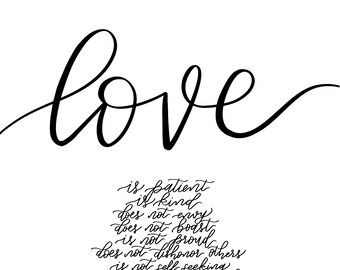 love
is patient
is kind
does not envy
does not boast
is not proud
does not dishonor others
is not self-seeking